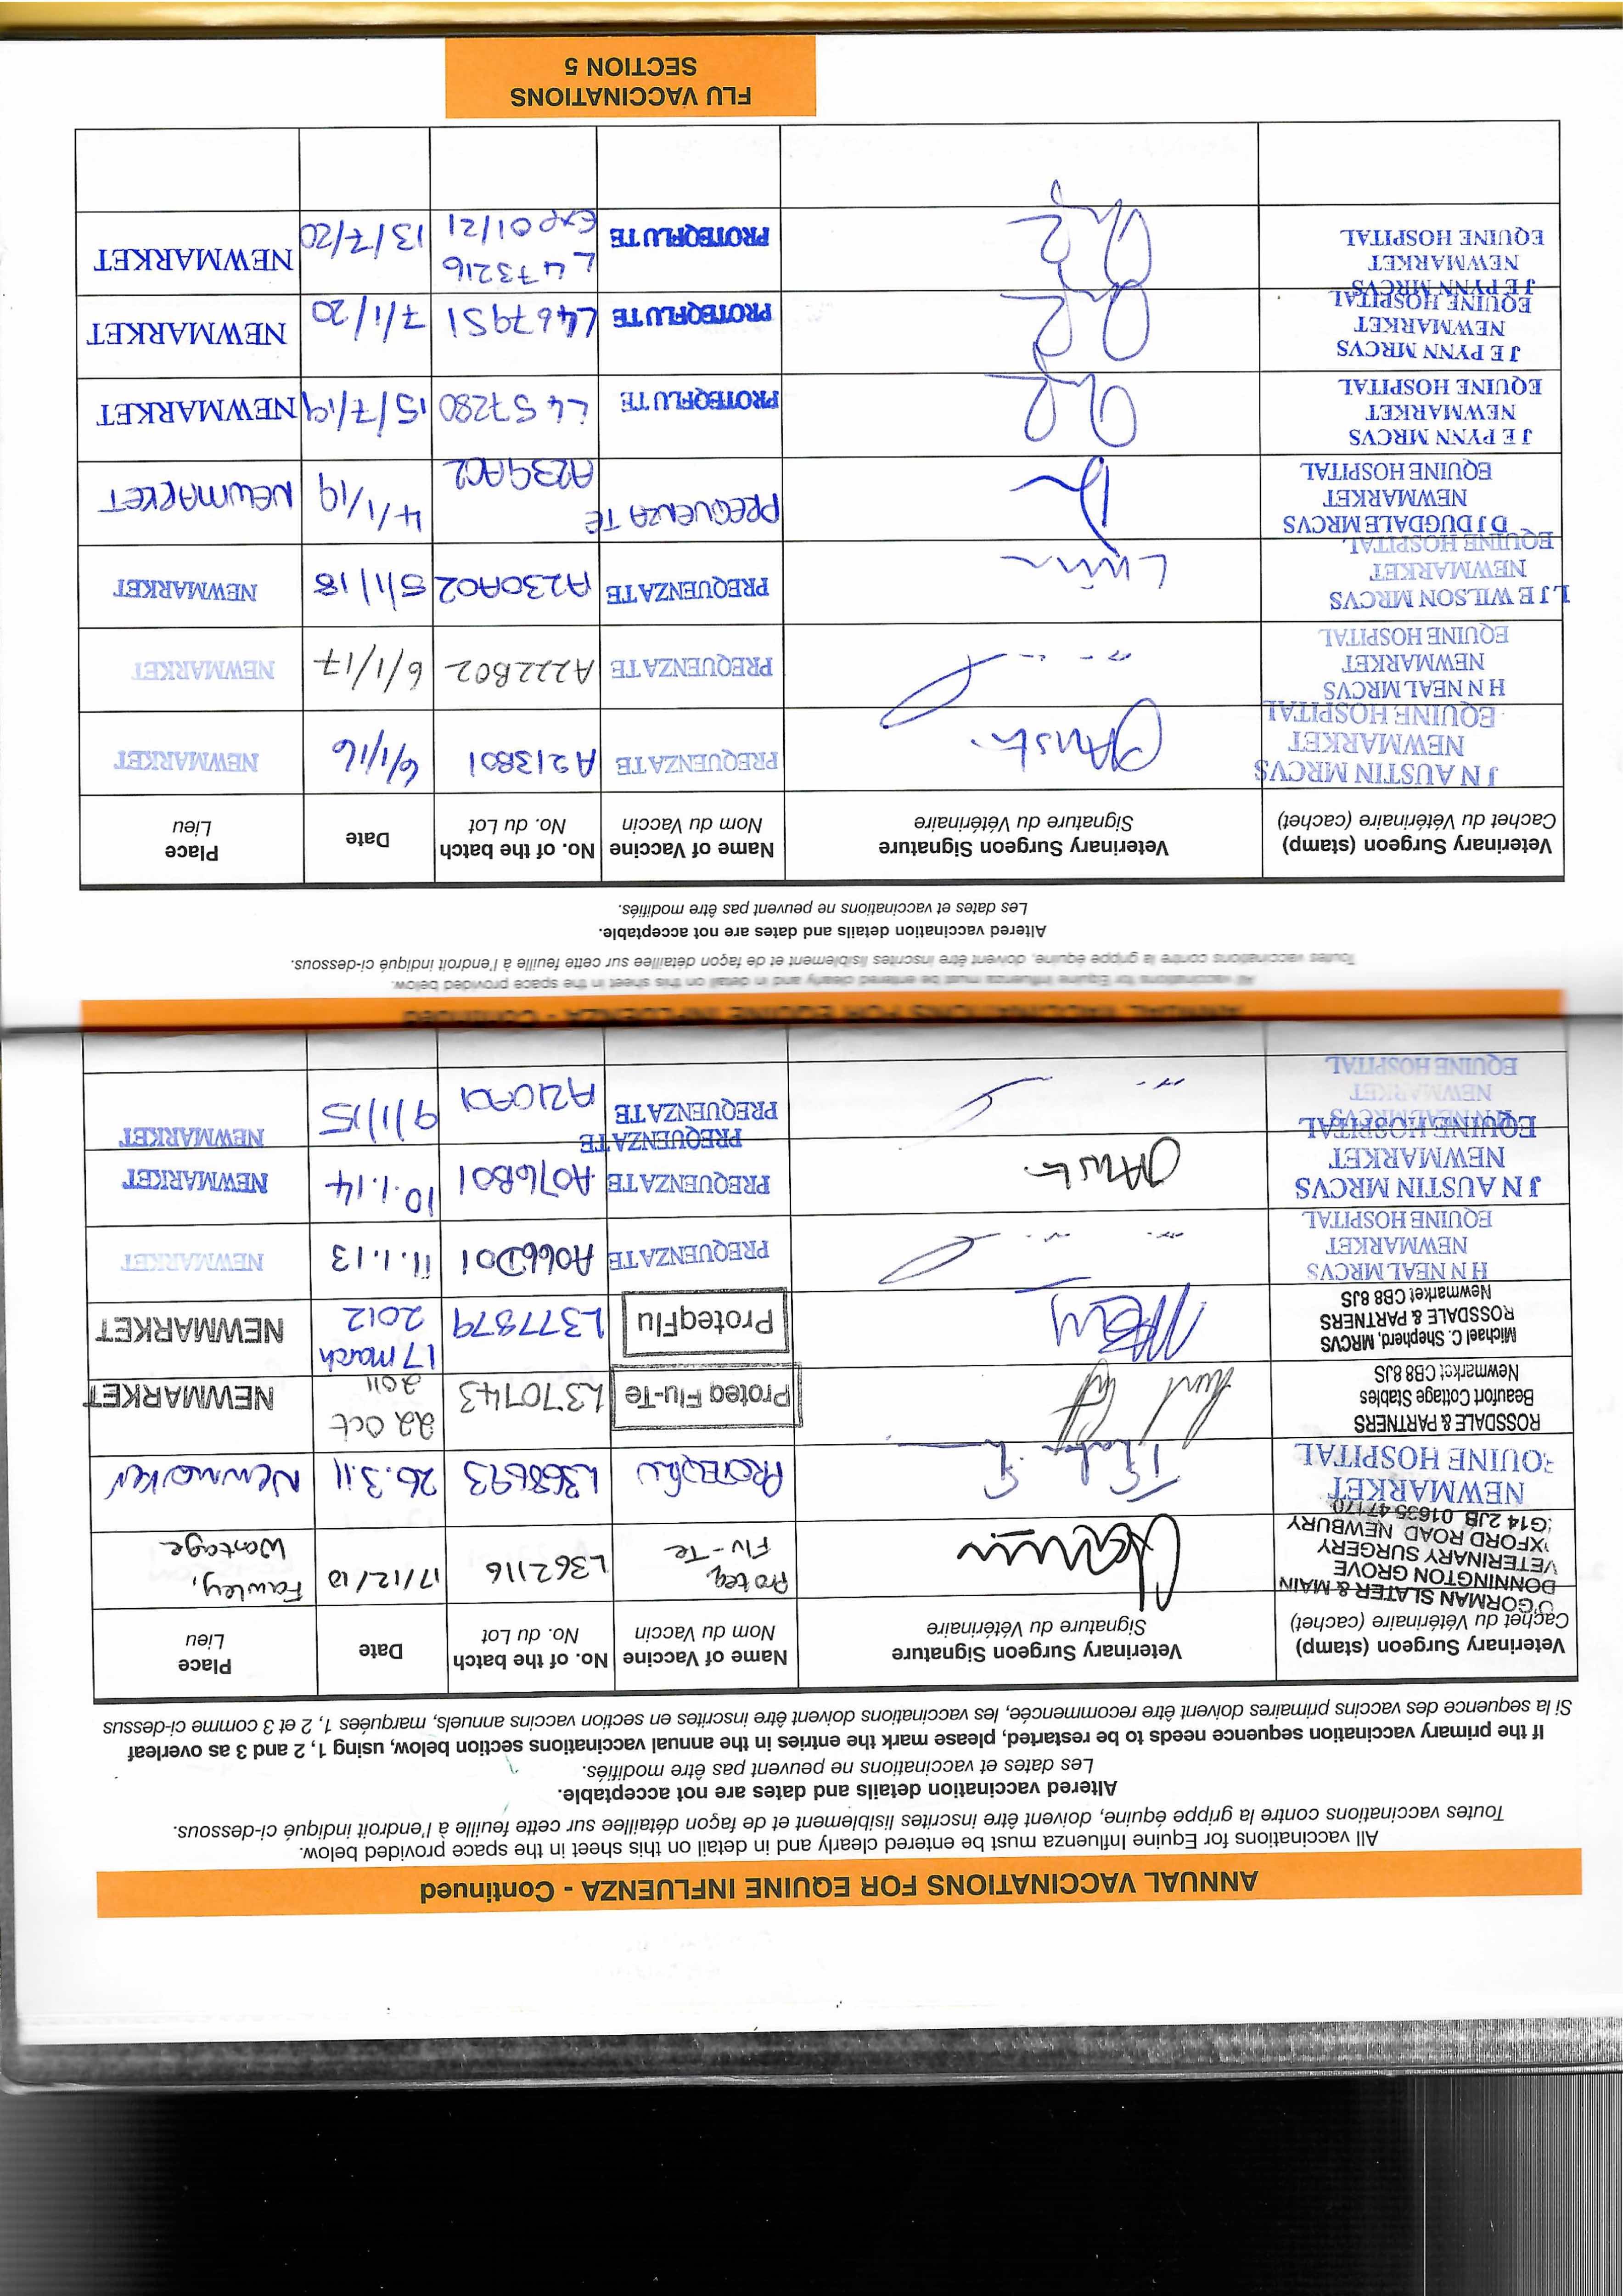 ANNUAL VACCINATIONS FOR EQUINE INFLUENZA - Continued
All vaccinations for Equine Influenza must be entered clearly and in detail on this sheet in the space provided below.
Toutes vaccinations contre la grippe équine, doivent être inscrites lisiblement et de façon détaillee sur cette feuille à l'endroit indiqué ci-dessous.
Altered vaccination details and dates are not acceptable.
Les dates et vaccinations ne peuvent pas être modifiés.
If the primary vaccination sequence needs to be restarted, please mark the entries in the annual vaccinations section below, using 1, 2 and 3 as overleaf
Si la sequence des vaccins primaires doivent être recommencée, les vaccinations doivent être inscrites en section vaccins annuels, marquées 1, 2 et 3 comme ci-dessus
Veterinary Surgeon (stamp) Veterinary Surgeon Signature Name of Vaccine No. of the batch Date Place
Cachet du Vétérinaire (cachet) Signature du Vétérinaire Nom du Vaccin No. du Lot Lieu
O'GORMAN SLATER & MAIN
DONNINGTON GROVE
VETERINARY SURGERY
XFORD ROAD NEWBURY
G14 2JB 01635 47170
Proteq Flu-Te L362116 17/12/10 Fawley, Wantage
NEWMARKET
EQUINE HOSPITAL
PROTEQFLU L368693 26.3.11 Newmarket
ROSSDALE & PARTNERS
Beaufort Cottage Stables
Newmarket CB8 8JS
Proteq Flu-Te L370743 22 Oct 2011 NEWMARKET
Michael C. Shepherd, MRCVS
ROSSDALE & PARTNERS
Newmarket CB8 8JS
ProteqFlu L377879 17 March 2012 NEWMARKET
H N NEAL MRCVS
NEWMARKET
EQUINE HOSPITAL
PREQUENZATE A066D01 11.1.13 NEWMARKET
J N AUSTIN MRCVS
NEWMARKET
EQUINE HOSPITAL
PREQUENZATE A076B01 10.1.14 NEWMARKET
PREQUENZATE
H N NEAL MRCVS
NEWMARKET
EQUINE HOSPITAL
PREQUENZATE A210A01 9/1/15 NEWMARKET
ANNUAL VACCINATIONS FOR EQUINE INFLUENZA - Continued
All vaccinations for Equine Influenza must be entered clearly and in detail on this sheet in the space provided below.
Toutes vaccinations contre la grippe équine, doivent être inscrites lisiblement et de façon détaillee sur cette feuille à l'endroit indiqué ci-dessous.
Altered vaccination details and dates are not acceptable.
Les dates et vaccinations ne peuvent pas être modifiés.
Veterinary Surgeon (stamp) Veterinary Surgeon Signature Name of Vaccine No. of the batch Date Place
Cachet du Vétérinaire (cachet) Signature du Vétérinaire Nom du Vaccin No. du Lot Lieu
J N AUSTIN MRCVS
NEWMARKET
EQUINE HOSPITAL
PREQUENZATE A213B01 6/1/16 NEWMARKET
H N NEAL MRCVS
NEWMARKET
EQUINE HOSPITAL
PREQUENZATE A222B02 6/1/17 NEWMARKET
L J E WILSON MRCVS
NEWMARKET
EQUINE HOSPITAL
PREQUENZATE A230A02 5/1/18 NEWMARKET
D J DUGDALE MRCVS
NEWMARKET
EQUINE HOSPITAL
PREQUENZA TE A239A02 4/1/19 NEWMARKET
J E PYNN MRCVS
NEWMARKET
EQUINE HOSPITAL
PROTEQFLU TE L457280 15/7/19 NEWMARKET
J E PYNN MRCVS
NEWMARKET
EQUINE HOSPITAL
PROTEQFLU TE L467951 7/1/20 NEWMARKET
J E PYNN MRCVS
NEWMARKET
EQUINE HOSPITAL
PROTEQFLU TE L473216 Exp 01/21 13/7/20 NEWMARKET
FLU VACCINATIONS
SECTION 5